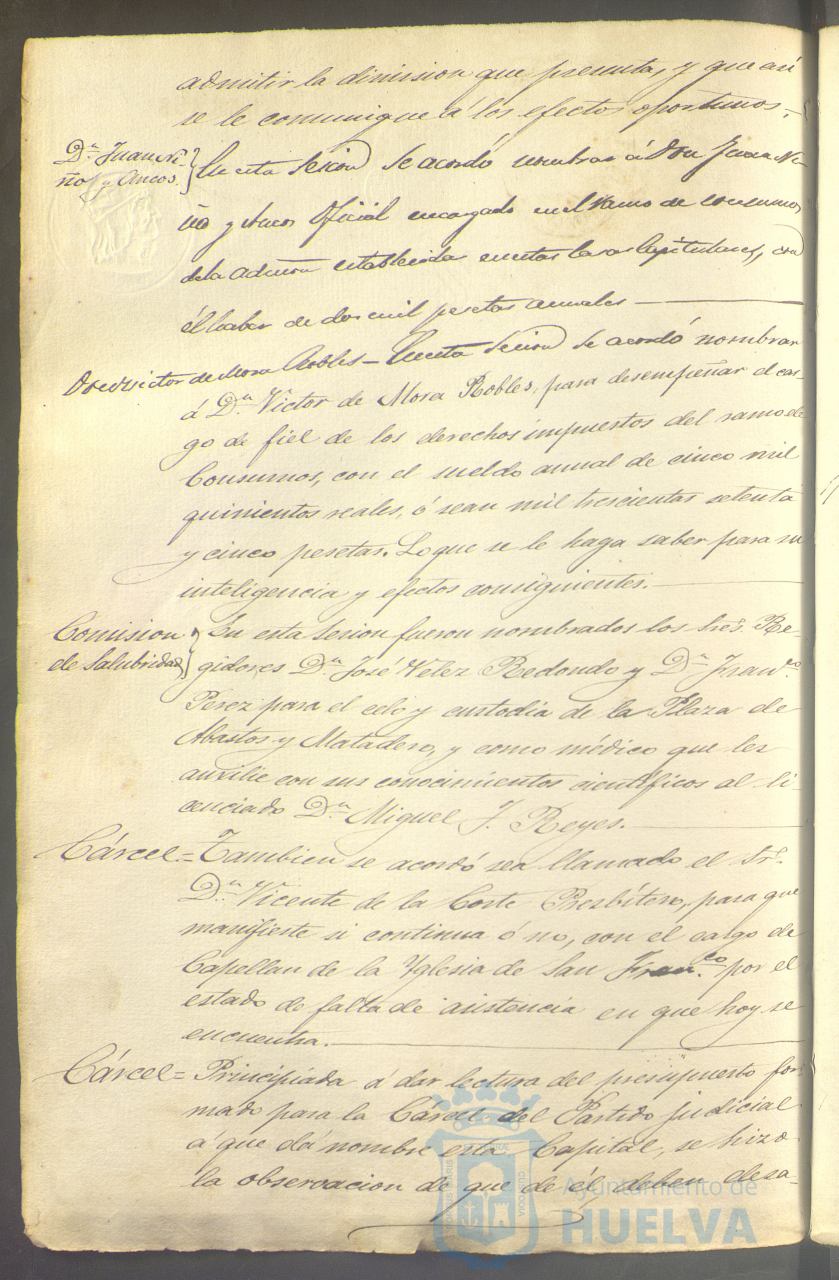 admitir la dimision que presenta, y que asi
se le comunique á los efectos oportunos.
Dn. Juan Ni-
ño y Ancos.
En esta Sesion Se acordó nombrar á Don Juan Ni-
ño y Ancos Oficial encargado en el Ramo de consumos
de la Admon establecida en estas Casas Capitulares, con
él haber de dos mil pesetas anuales
Don Victor de Mora Robles = En esta Sesion Se acordó nombrar
á Dn. Victor de Mora Robles, para desempeñar el car-
go de fiel de los derechos impuestos del ramo de
Consumos, con el sueldo anual de cinco mil
quinientos reales, ó sean mil trescientas setenta
y cinco pesetas. Lo que se le haga saber para su
inteligencia y efectos consiguientes.
Comision
de Salubridad
En esta Sesion fueron nombrados los Sres. Re-
gidores Dn. José Velez Redondo y Dn. Franco.
Perez para el celo y custodia de la Plaza de
Abastos y Matadero, y como médico que les
auxilie con sus conocimientos científicos al li-
cenciado Dn. Miguel J. Reyes.
Cárcel = Tambien se acordó sea llamado el Sr.
Dn. Vicente de la Corte Presbítero, para que
manifieste si continua ó no, con el cargo de
Capellan de la Yglesia de San Franco. por el
estado de falta de asistencia en que hoy se
encuentra.
Cárcel = Principiada á dar lectura del presupuesto for-
mado para la Cárcel del Partido judicial
á que dá nombre esta Capital, se hizo
la observacion de que de él deben desa-
Ayuntamiento de
HUELVA